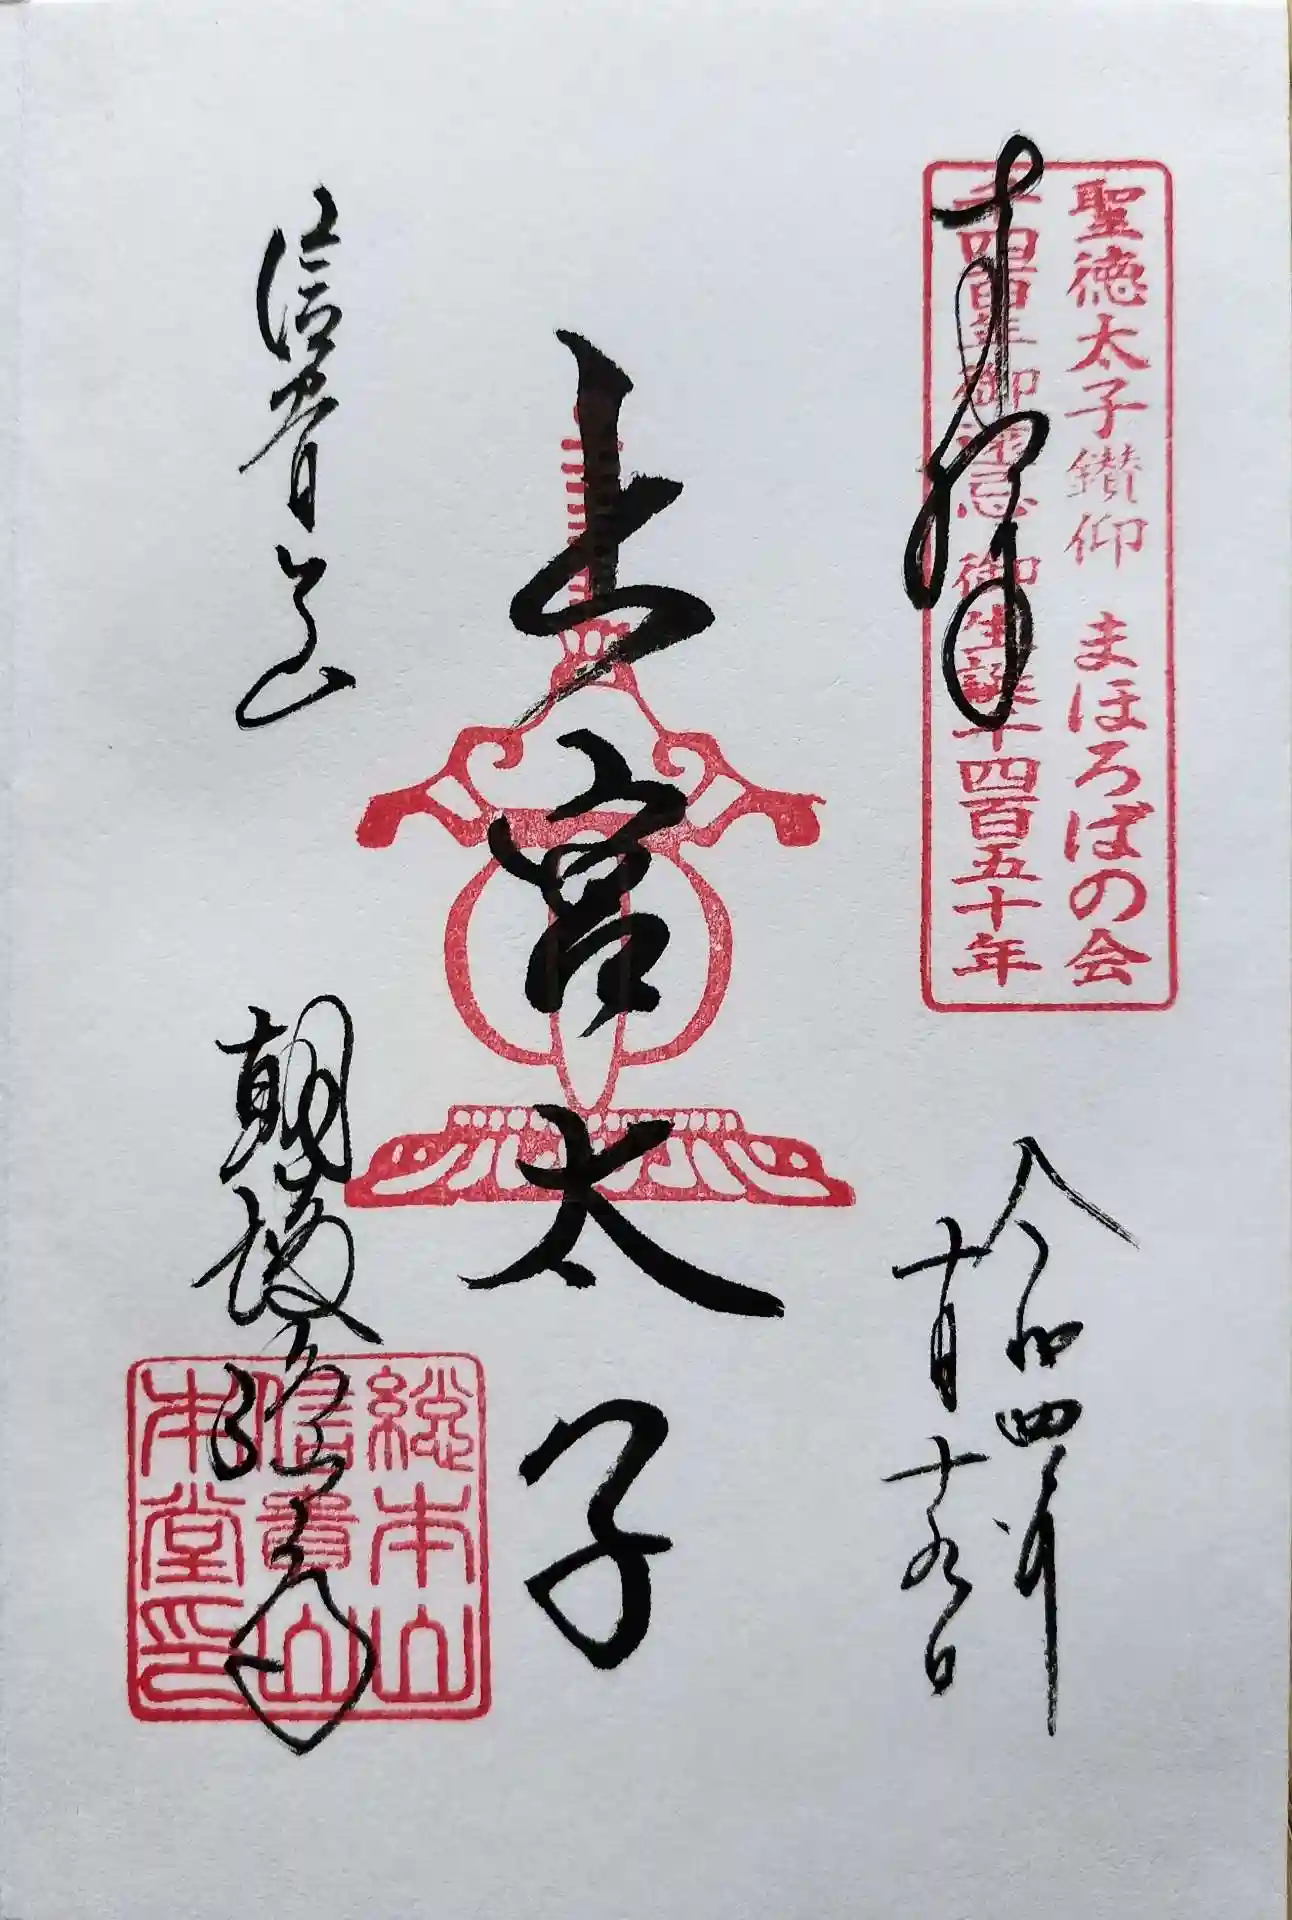 奉拝
聖徳太子鑽仰 まほろばの会
千四百年御遠忌 御生誕千四百五十年
令和四年
十月十九日
上宮太子
信貴山
朝護孫子寺
総本山
信貴山
本堂印